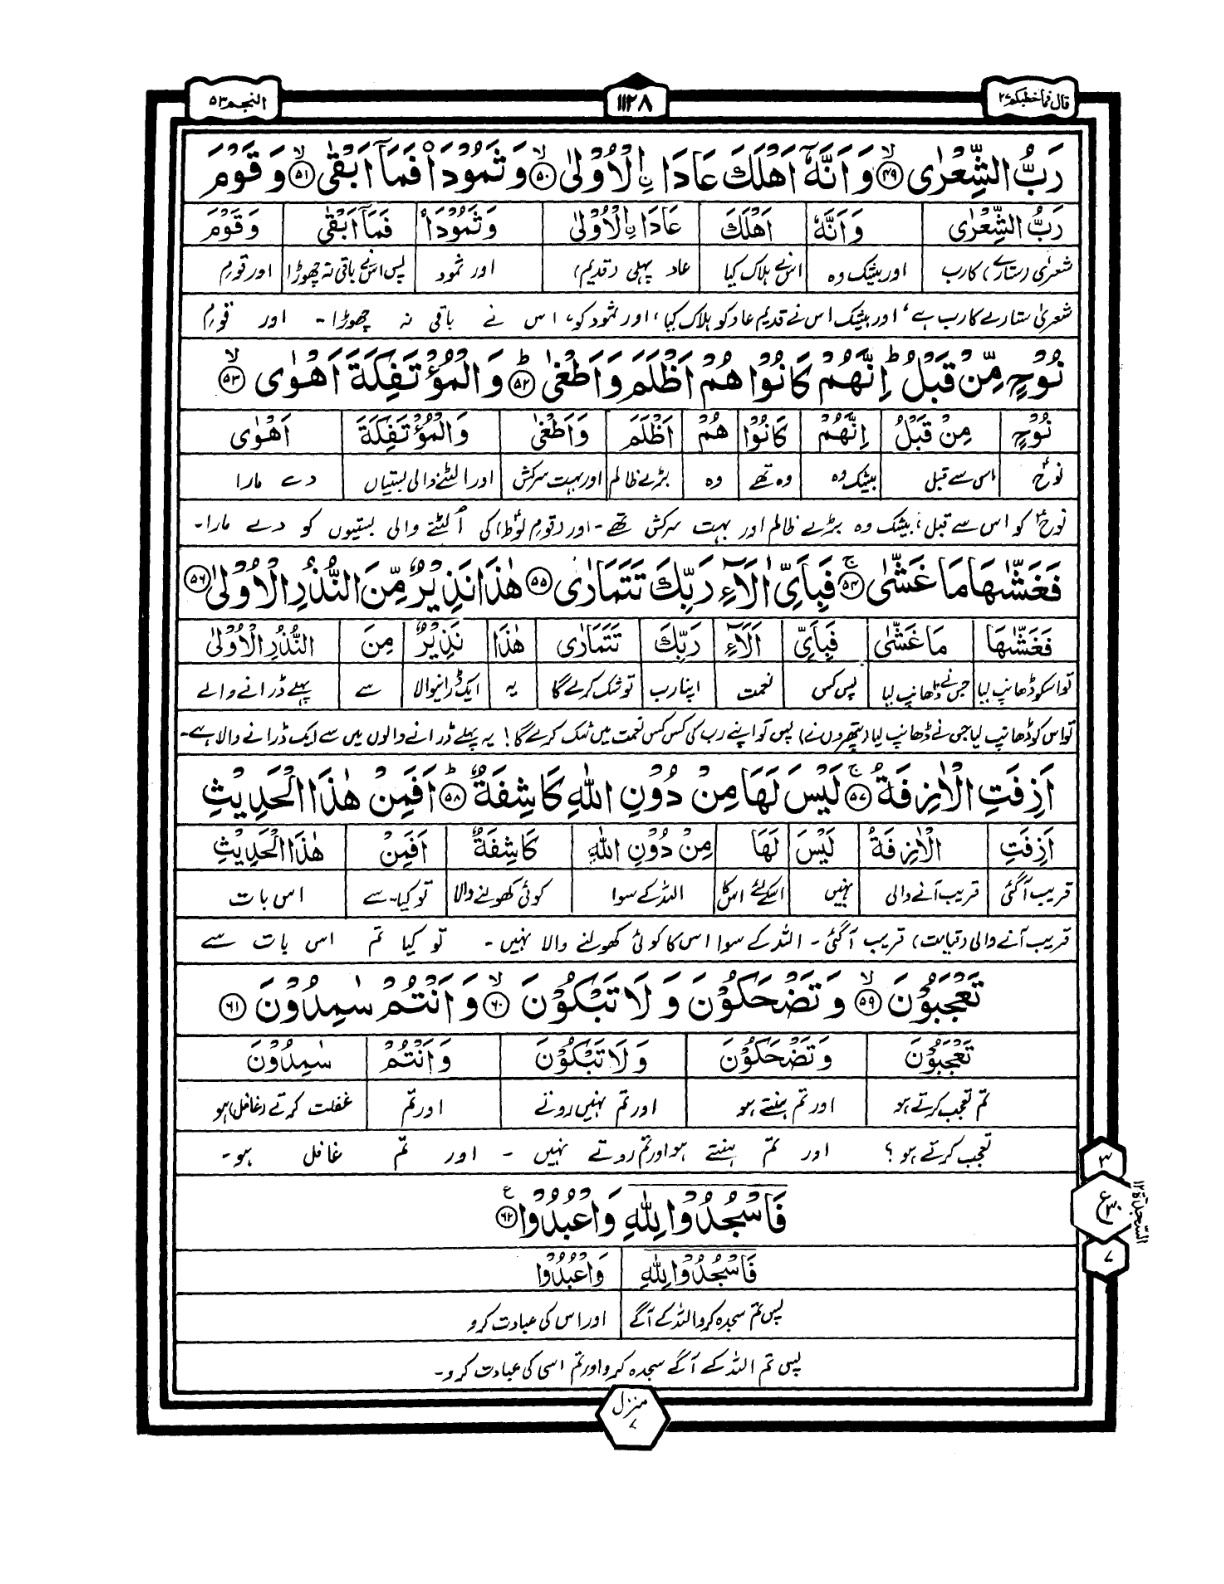 قال فما خطبکم ۲۷
۱۱۲۸
النجم ۵۳
رَبُّ الشِّعْرٰى ﴿۴۹﴾ وَ اَنَّهٗۤ اَهْلَكَ عَادَا اۨلْاُوْلٰى ﴿۵۰﴾ وَ ثَمُوْدَا۠ فَمَاۤ اَبْقٰى ﴿۵۱﴾ وَ قَوْمَ
رَبُّ الشِّعْرٰى وَ اَنَّهٗ اَهْلَكَ عَادَا اۨلْاُوْلٰى وَ ثَمُوْدَا۠ فَمَاۤ اَبْقٰى وَ قَوْمَ
شعرٰی (ستارے) کا رب اور بیشک وہ اس نے ہلاک کیا عاد پہلی (قدیم) اور ثمود پس اس نے باقی نہ چھوڑا اور قومِ
شعریٰ ستارے کا رب ہے، اور بیشک اس نے قدیم عاد کو ہلاک کیا، اور ثمود کو، اس نے باقی نہ چھوڑا۔ اور قومِ
نُوْحٍ مِّنْ قَبْلُ ؕ اِنَّهُمْ كَانُوْا هُمْ اَظْلَمَ وَ اَطْغٰى ﴿۵۲﴾ؕ وَ الْمُؤْتَفِكَةَ اَهْوٰى ﴿۵۳﴾
نُوْحٍ مِنْ قَبْلُ اِنَّهُمْ كَانُوْا هُمْ اَظْلَمَ وَ اَطْغٰى وَ الْمُؤْتَفِكَةَ اَهْوٰى
نوحؑ اس سے قبل بیشک وہ وہ تھے وہ بڑے ظالم اور بہت سرکش اور الٹنے والی بستیاں دے مارا
نوحؑ کو اس سے قبل، بیشک وہ بڑے ظالم اور بہت سرکش تھے۔ اور (قومِ لوطؑ) کی الٹنے والی بستیوں کو دے مارا۔
فَغَشّٰىهَا مَا غَشّٰى ﴿۵۴﴾ۚ فَبِاَىِّ اٰلَآءِ رَبِّكَ تَتَمَارٰى ﴿۵۵﴾ هٰذَا نَذِيْرٌ مِّنَ النُّذُرِ الْاُوْلٰى ﴿۵۶﴾
فَغَشّٰىهَا مَا غَشّٰى فَبِاَىِّ اٰلَآءِ رَبِّكَ تَتَمَارٰى هٰذَا نَذِيْرٌ مِنَ النُّذُرِ الْاُوْلٰى
تو اسکو ڈھانپ لیا جس نے ڈھانپ لیا پس کس نعمت اپنا رب تو شک کرے گا یہ ایک ڈرانیوالا سے پہلے ڈرانے والے
تو اس کو ڈھانپ لیا جس نے ڈھانپ لیا (پتھروں نے) پس تو اپنے رب کی کس کس نعمت میں شک کرے گا! یہ پہلے ڈرانے والوں میں سے ایک ڈرانے والا ہے۔
اَزِفَتِ الْاٰزِفَةُ ﴿۵۷﴾ۚ لَيْسَ لَهَا مِنْ دُوْنِ اللّٰهِ كَاشِفَةٌ ﴿۵۸﴾ؕ اَفَمِنْ هٰذَا الْحَدِيْثِ
اَزِفَتِ الْاٰزِفَةُ لَيْسَ لَهَا مِنْ دُوْنِ اللّٰهِ كَاشِفَةٌ اَفَمِنْ هٰذَا الْحَدِيْثِ
قریب آگئی قریب آنے والی نہیں اسکے لئے اس کا اللہ کے سوا کوئی کھولنے والا تو کیا۔ سے اس بات
قریب آنے والی (قیامت) قریب آگئی۔ اللہ کے سوا اس کا کوئی کھولنے والا نہیں۔ تو کیا تم اس بات سے
تَعْجَبُوْنَ ﴿۵۹﴾ۙ وَ تَضْحَكُوْنَ وَ لَا تَبْكُوْنَ ﴿۶۰﴾ۙ وَ اَنْتُمْ سٰمِدُوْنَ ﴿۶۱﴾
تَعْجَبُوْنَ وَ تَضْحَكُوْنَ وَ لَا تَبْكُوْنَ وَ اَنْتُمْ سٰمِدُوْنَ
تم تعجب کرتے ہو اور تم ہنستے ہو اور تم نہیں روتے اور تم غفلت کرتے (غافل) ہو
تعجب کرتے ہو؟ اور تم ہنستے ہو اور تم روتے نہیں۔ اور تم غافل ہو۔
فَاسْجُدُوْا لِلّٰهِ وَ اعْبُدُوْا ﴿۶۲﴾
فَاسْجُدُوْا لِلّٰهِ وَ اعْبُدُوْا
پس تم سجدہ کرو اللہ کے آگے اور اس کی عبادت کرو
پس تم اللہ کے آگے سجدہ کرو اور تم اسی کی عبادت کرو۔
۳
ع ۳۰
۷
السجدة ۱۲
منزل ۷